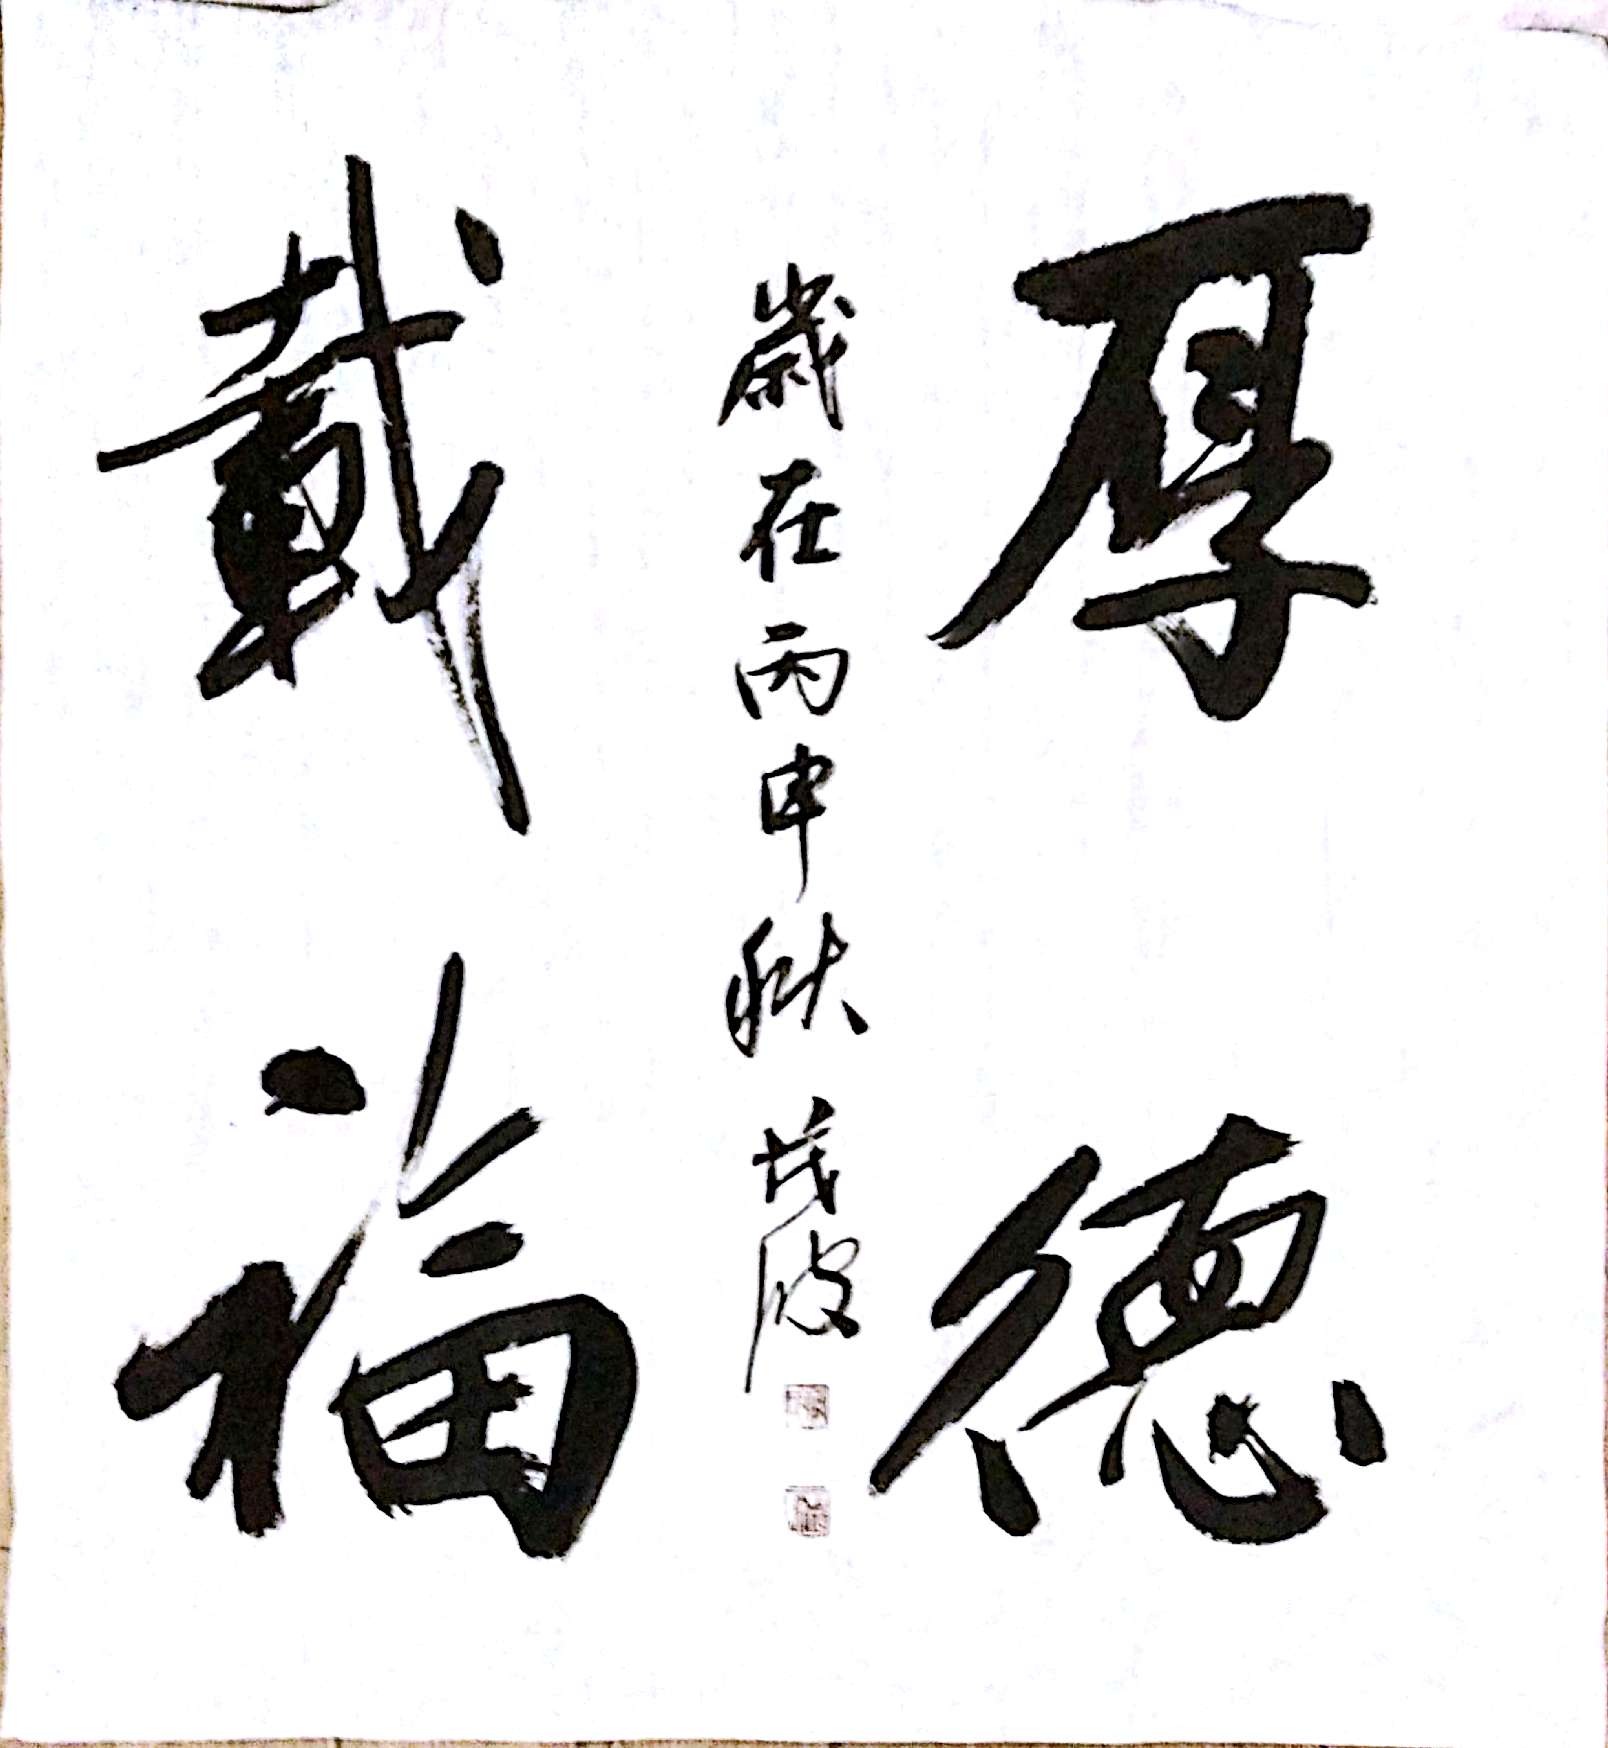 厚德
載福
歲在丙申秋茂波